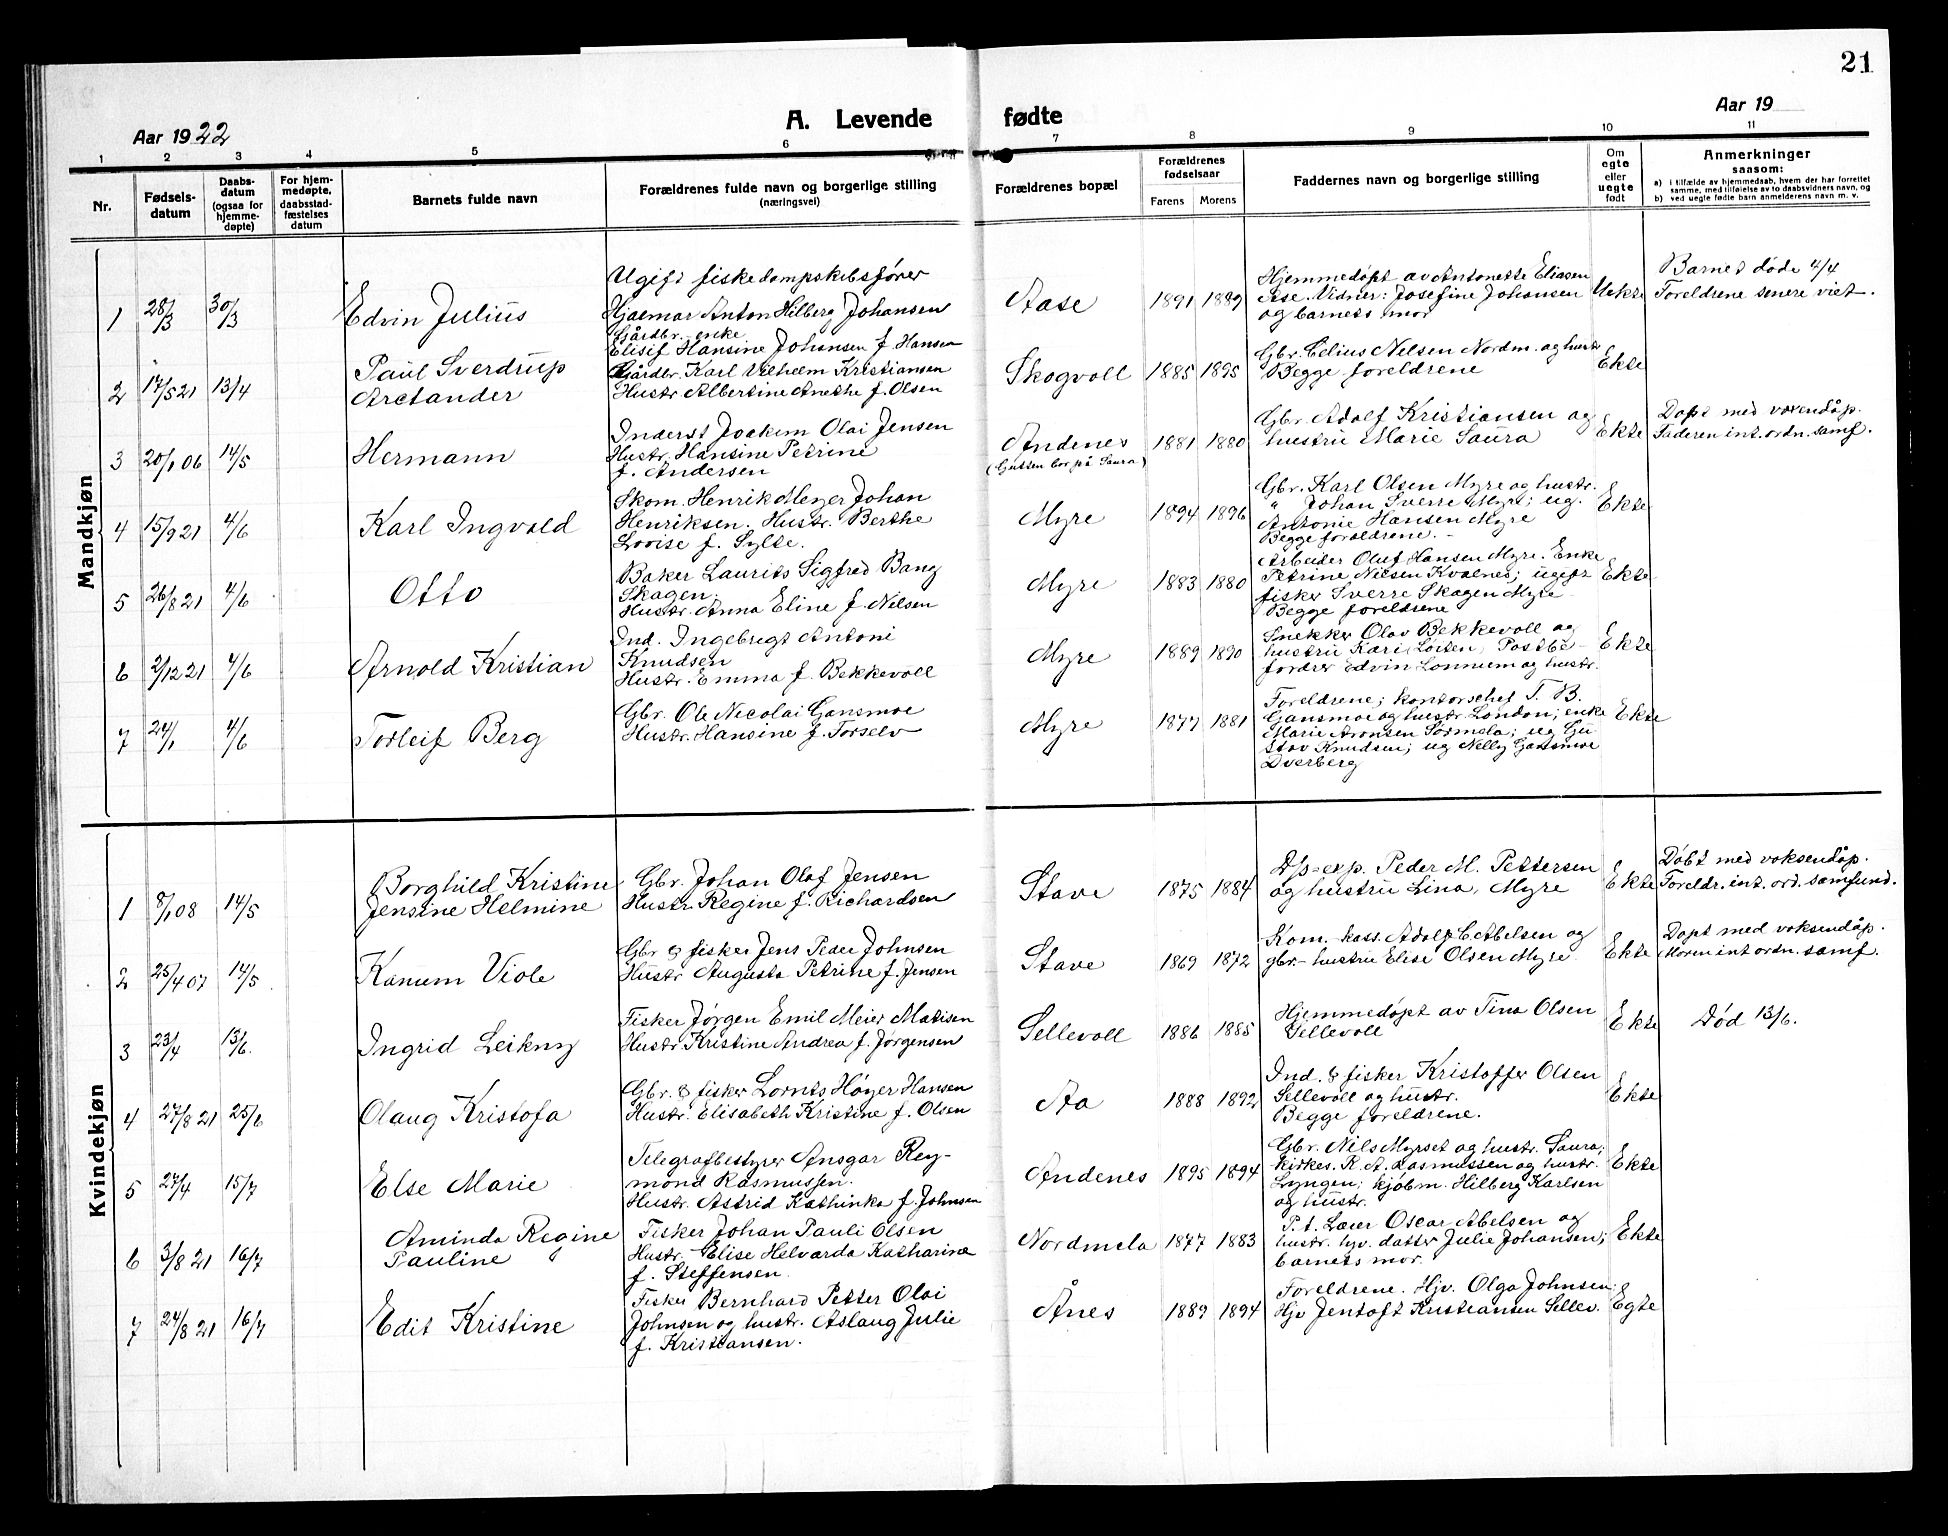 21
Aar 1922
A. Levende
fødte
Aar 19
1 2 3 4 5 6 7 8 9 10 11
Nr.
Fødsels-
datum
Daabs-
datum
(ogsaa for
hjemme-
døpte)
For hjem-
medøpte,
daabsstad-
fæstelses
datum
Barnets fulde navn
Forældrenes fulde navn og borgerlige stilling
(næringsvei)
Forældrenes bopæl
Forældrenes
fødselsaar
Farens Morens
Faddernes navn og borgerlige stilling
Om
egte
eller
uegte
født
Anmerkninger
saasom:
a) i tilfælde av hjemmedaab, hvem der har forrettet
samme, med tilføielse av to daabsvidners navn, og
b) ved uegte fødte barn anmelderens navn m. v.
Mandkjøn
1 28/3 30/3 Edvin Julius
Ugift fiskedampskibsfører
Hjalmar Anton Hilberg Johansen
Gårdbr. enke
Elisif Hansine Johansen f. Hansen
Aase 1891 1889
Hjemmedøpt av Antonette Eliasen
Åse. Vidner: Josefine Johansen
og barnets mor
Uekte
Barnet døde 4/4
Foreldrene senere viet.
2 17/5 21 13/4 Paul Sverdrup
Arctander
Gårdbr. Karl Vilhelm Kristiansen
Hustr. Albertine Anethe f. Olsen
Skogvoll 1885 1895
Gbr. Celius Nilsen Nordm. og hustr
Begge foreldrene
Ekte
3 20/1 06 14/5 Hermann
Inderst Joakim Olai Jensen
Hustr. Hansine Petrine
f. Andersen
Andenes 1881 1880
(Gutten bor på Saura)
Gbr. Adolf Kristiansen og
hustru Marie Saura
Ekte
Døpt med voxendåp.
Faderen int. ordn. samf.
4 15/9 21 4/6 Karl Ingvald
Skom. Henrik Meyer Johan
Henriksen. Hustr. Berthe
Lovise f. Sylte.
Myre 1894 1896
Gbr. Karl Olsen Myre og hustr.
" Johan Sverre Myre; ug.
Antonie Hansen Myre
Begge foreldrene.
Ekte
5 26/8 21 4/6 Otto
Baker Laurits Sigfred Bang
Skagen.
Hustr. Anna Eline f. Nilsen
Myre 1883 1880
Arbeider Oluf Hansen Myre. Enke
Petrine Nilsen Kvalnes; ugift
fisker Sverre Skagen Myre
Begge foreldrene
Ekte
6 2/12 21 4/6 Arnold Kristian
Ind. Ingebrigt Antoni
Knudsen
Hustr. Emma f. Bekkevoll
Myre 1889 1890
Snekker Olav Bekkevoll og
hustru Kari, Postbe-
fordrer Edvin Lonnum og hustr.
Ekte
7 24/1 4/6 Torleif Berg
Gbr. Ole Nicolai Gansmoe
Hustr. Hansine f. Torselv
Myre 1877 1881
Foreldrene; kontorschef T. B.
Gansmoe og hustr. London; enke
Marie Aronsen Sørmela; ug Gu
stav Knudsen; ug Nelly Gansmoe
Dverberg
Ekte
Kvindekjøn
1 8/1 08 14/5 Borghild Kristine
Jensine Helmine
Gbr. Johan Olaf Jensen
Hustr Regine f. Richardsen
Stave 1875 1884
Dp-exp. Peder M. Pettersen
og hustru Lina, Myre
Ekte
Døbt med voksendåp.
Foreldr. int. ord. samfund.
2 25/4 07 14/5 Kanum Viole
Gbr & fisker Jens Peder Johnsen
Hustr Augusta Petrine f. Jensen
Stave 1869 1872
Kom. kass. Adolf C Abelsen og
gbr-hustru Elise Olsen Myre
Ekte
Døpt med voksendåp.
Moren int ordn. samf.
3 23/4 13/6. Ingrid Leikny
Fisker Jørgen Emil Meier Matisen
Hustr Kristine Andrea f. Jørgensen
Sellevoll 1886 1885
Hjemmedøpt av Tina Olsen
Sellevoll
Ekte
Død 13/6.
4 27/8 21 25/6 Olaug Kristofa
Gbr. & fisker Lornts Høyer Hansen
Hustr. Elisabeth Kristine f. Olsen
Aa 1888 1892
Ind. & fisker Kristoffer Olsen
Sellevoll og hustr.
Begge foreldrene.
Ekte
5 27/4 15/7 Else Marie
Telegrafbestyrer Ansgar Rey-
mond Rasmussen.
Hustr. Astrid Kathinka f. Johnsen
Andenes 1895 1894
Gbr. Nils Myrset og hustr. Saura;
kirkes. R. A. Rasmussen og hustr.
Lyngen; kjøbm. Hilberg Karlsen
og hustr.
Ekte
6 3/8 21 16/7 Aminda Regine
Pauline
Fisker Johan Pauli Olsen
Hustr. Elise Helvarda Katharina
f. Steffensen
Nordmela 1877 1883
P.t. Lærer Oscar Abelsen og
hustr. hjv. datter Julie Johansen;
barnets mor.
Ekte
7 24/8 21 16/7 Edit Kristine
Fisker Bernhard Petter Olai
Johnsen og hustr. Aslaug Julie
f. Kristiansen.
Ånes 1889 1894
Foreldrene. Hjv. Olga Johnsen;
Hjv Jentoft Kristiansen Sellev.
Egte